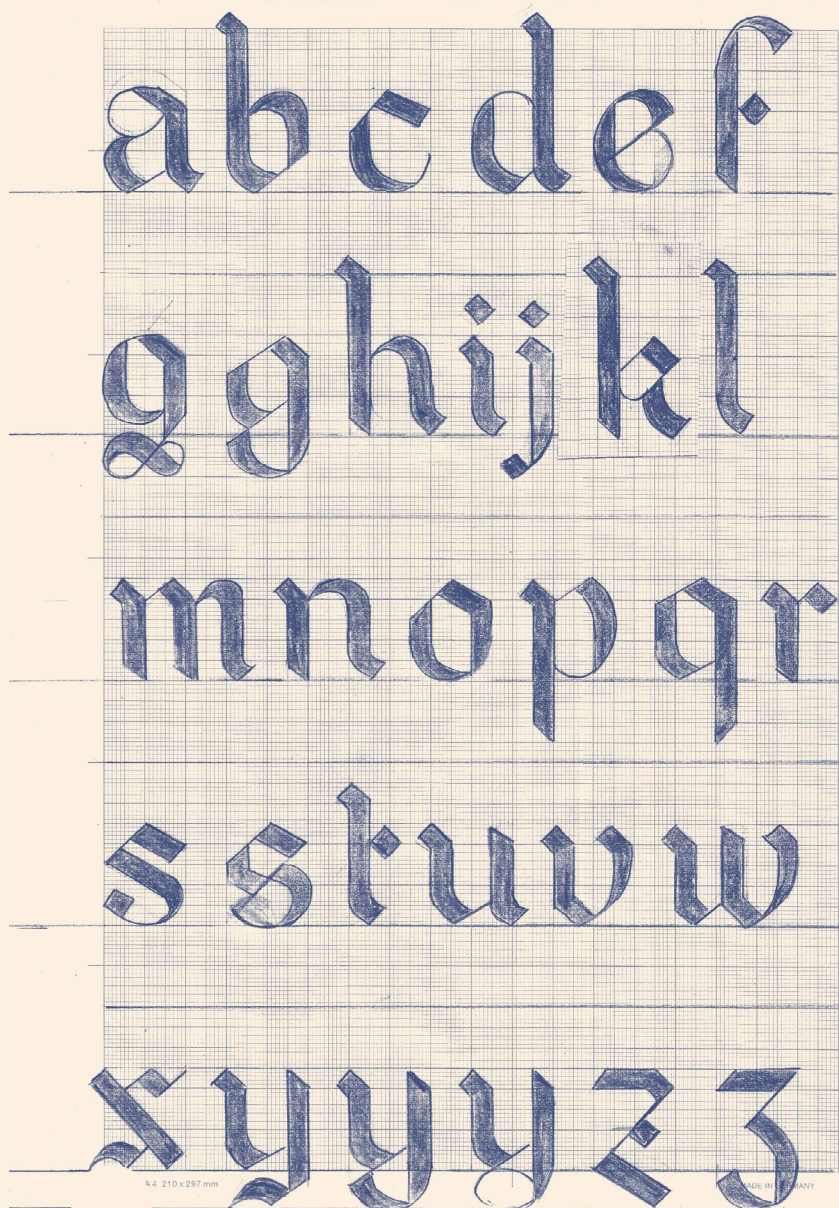 a b c d e f
g g h i j k l
m n o p q r
s s t u v w
x y y y z z
A4 210 x 297 mm MADE IN GERMANY